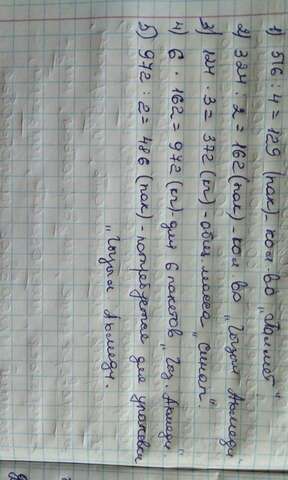 1) 516 : 4 = 129 (пак) - кол во „Талмет"
2) 324 · 2 = 162 (пак) - кол во „Гызыл Аьмеды
3) 124 · 3 = 372 (кг) - общ масса „Синап".
4) 6 · 162 = 972 (кг) - для 6 пакетов „Гыз. Аьмеды"
5) 972 : 2 = 486 (пак) - потребуется для упаковки
„Гызыл Аьмеды.